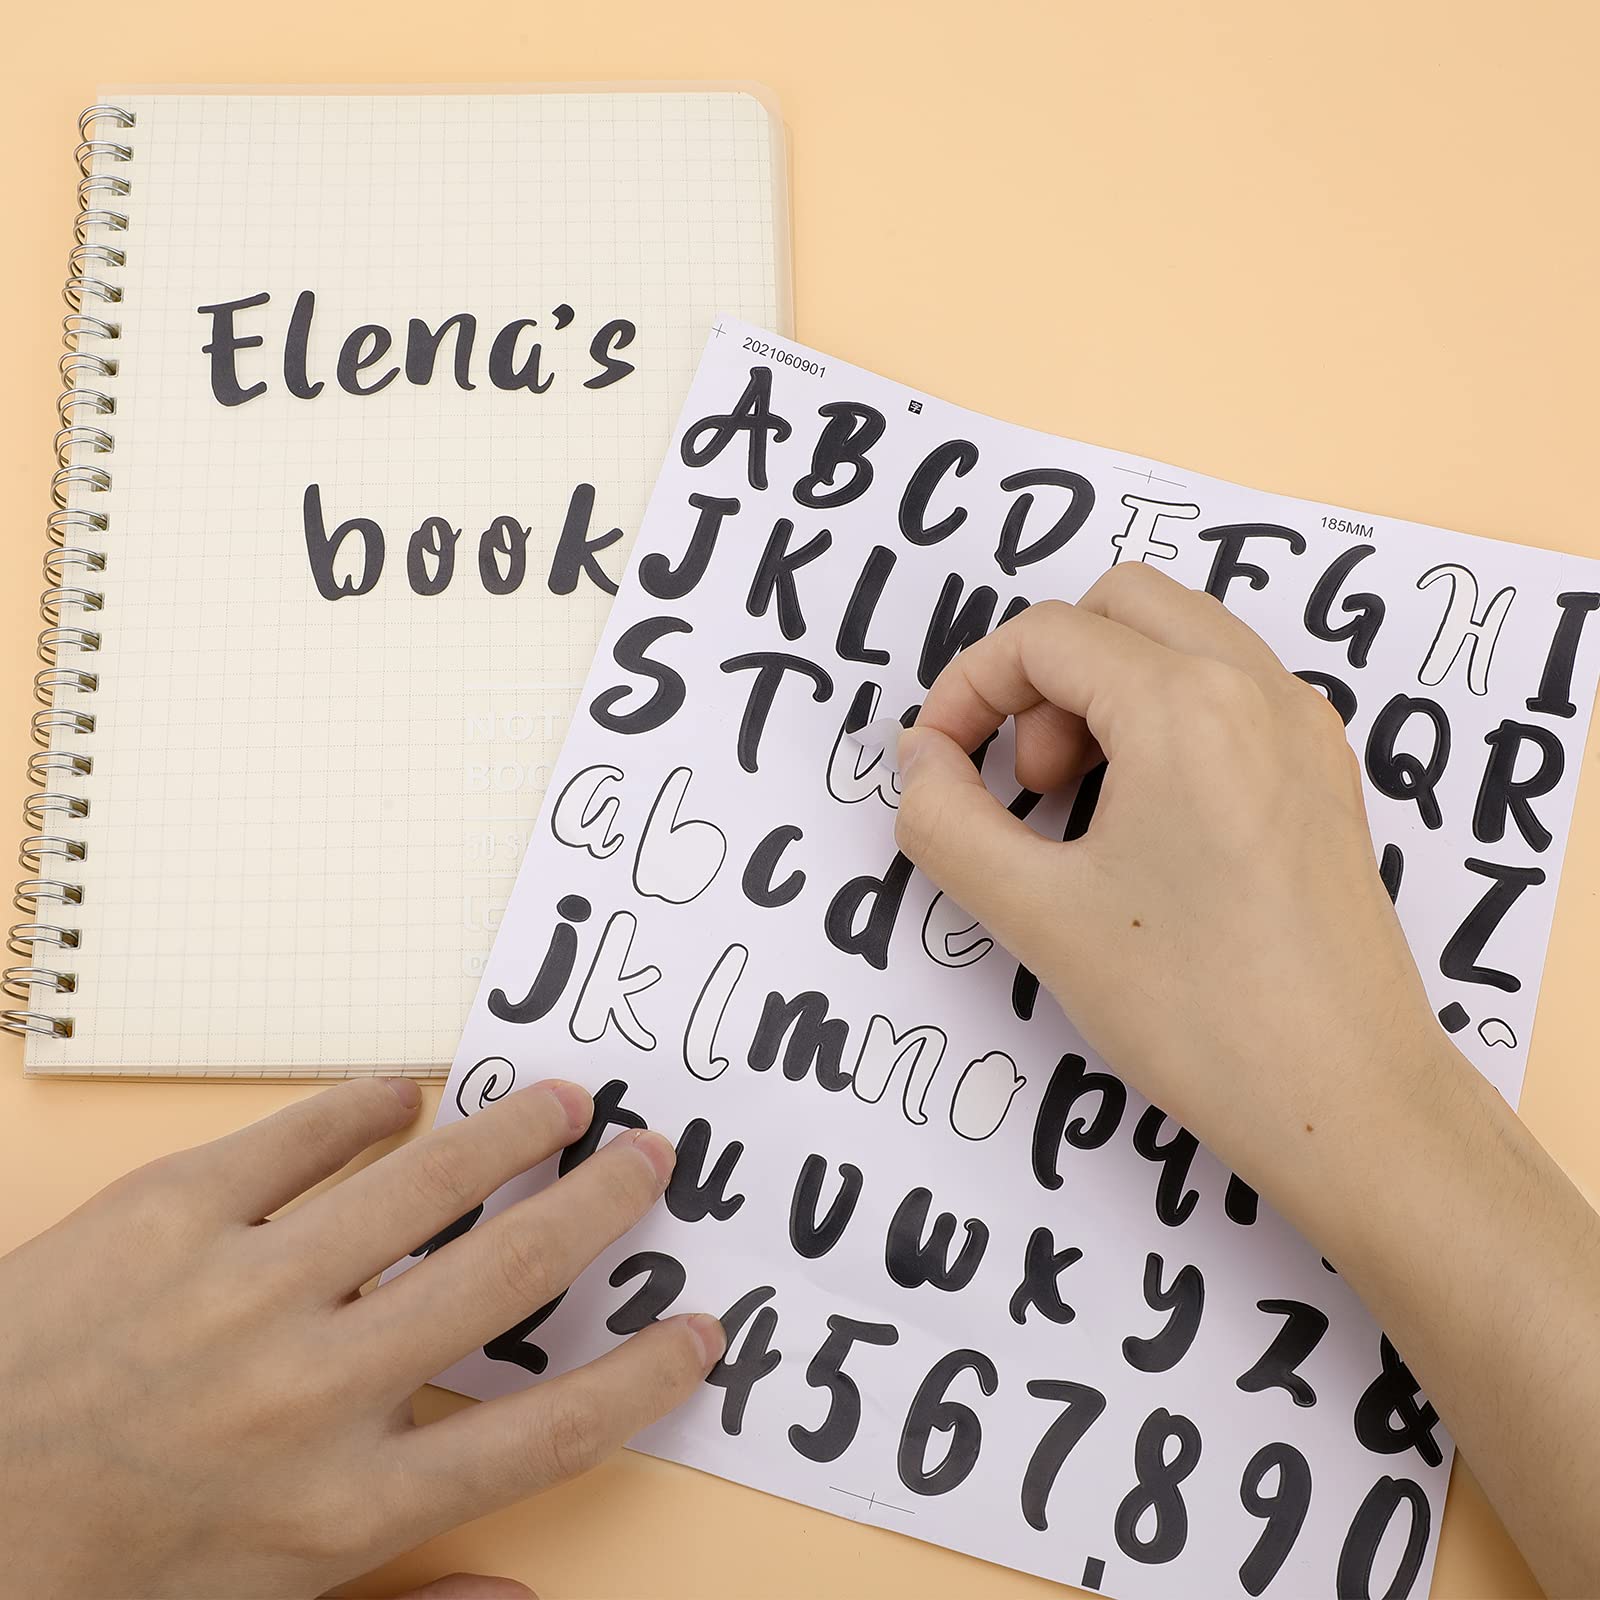 Elena's
book
NOT
BOO
2021060901
185MM
A B C D E F G H I
J K L M Q R
S T U Z
a b c d e
j k l m n o p q
s t u v w x y z &
2 4 5 6 7 8 9 0